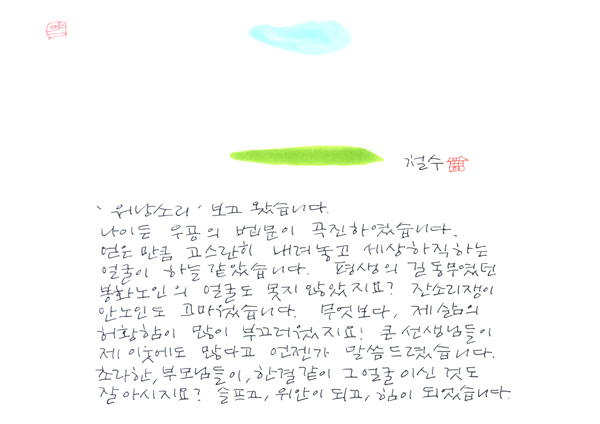 철수
'워낭소리' 보고 왔습니다.
나이든 우공의 법문이 곡진하였습니다.
얻은 만큼 고스란히 내려놓고 세상하직하는
얼굴이 하늘 같았습니다. 평생의 길동무였던
봉화노인의 얼굴도 못지 않았지요? 잔소리쟁이
안노인도 고마웠습니다. 무엇보다, 제 삶의
허황함이 많이 부끄러웠지요! 큰 선생님들이
제 이웃에도 많다고 언젠가 말씀드렸습니다.
초라한, 부모님들이, 한결같이 그 얼굴이신 것도
잘 아시지요? 슬프고, 위안이 되고, 힘이 되었습니다.